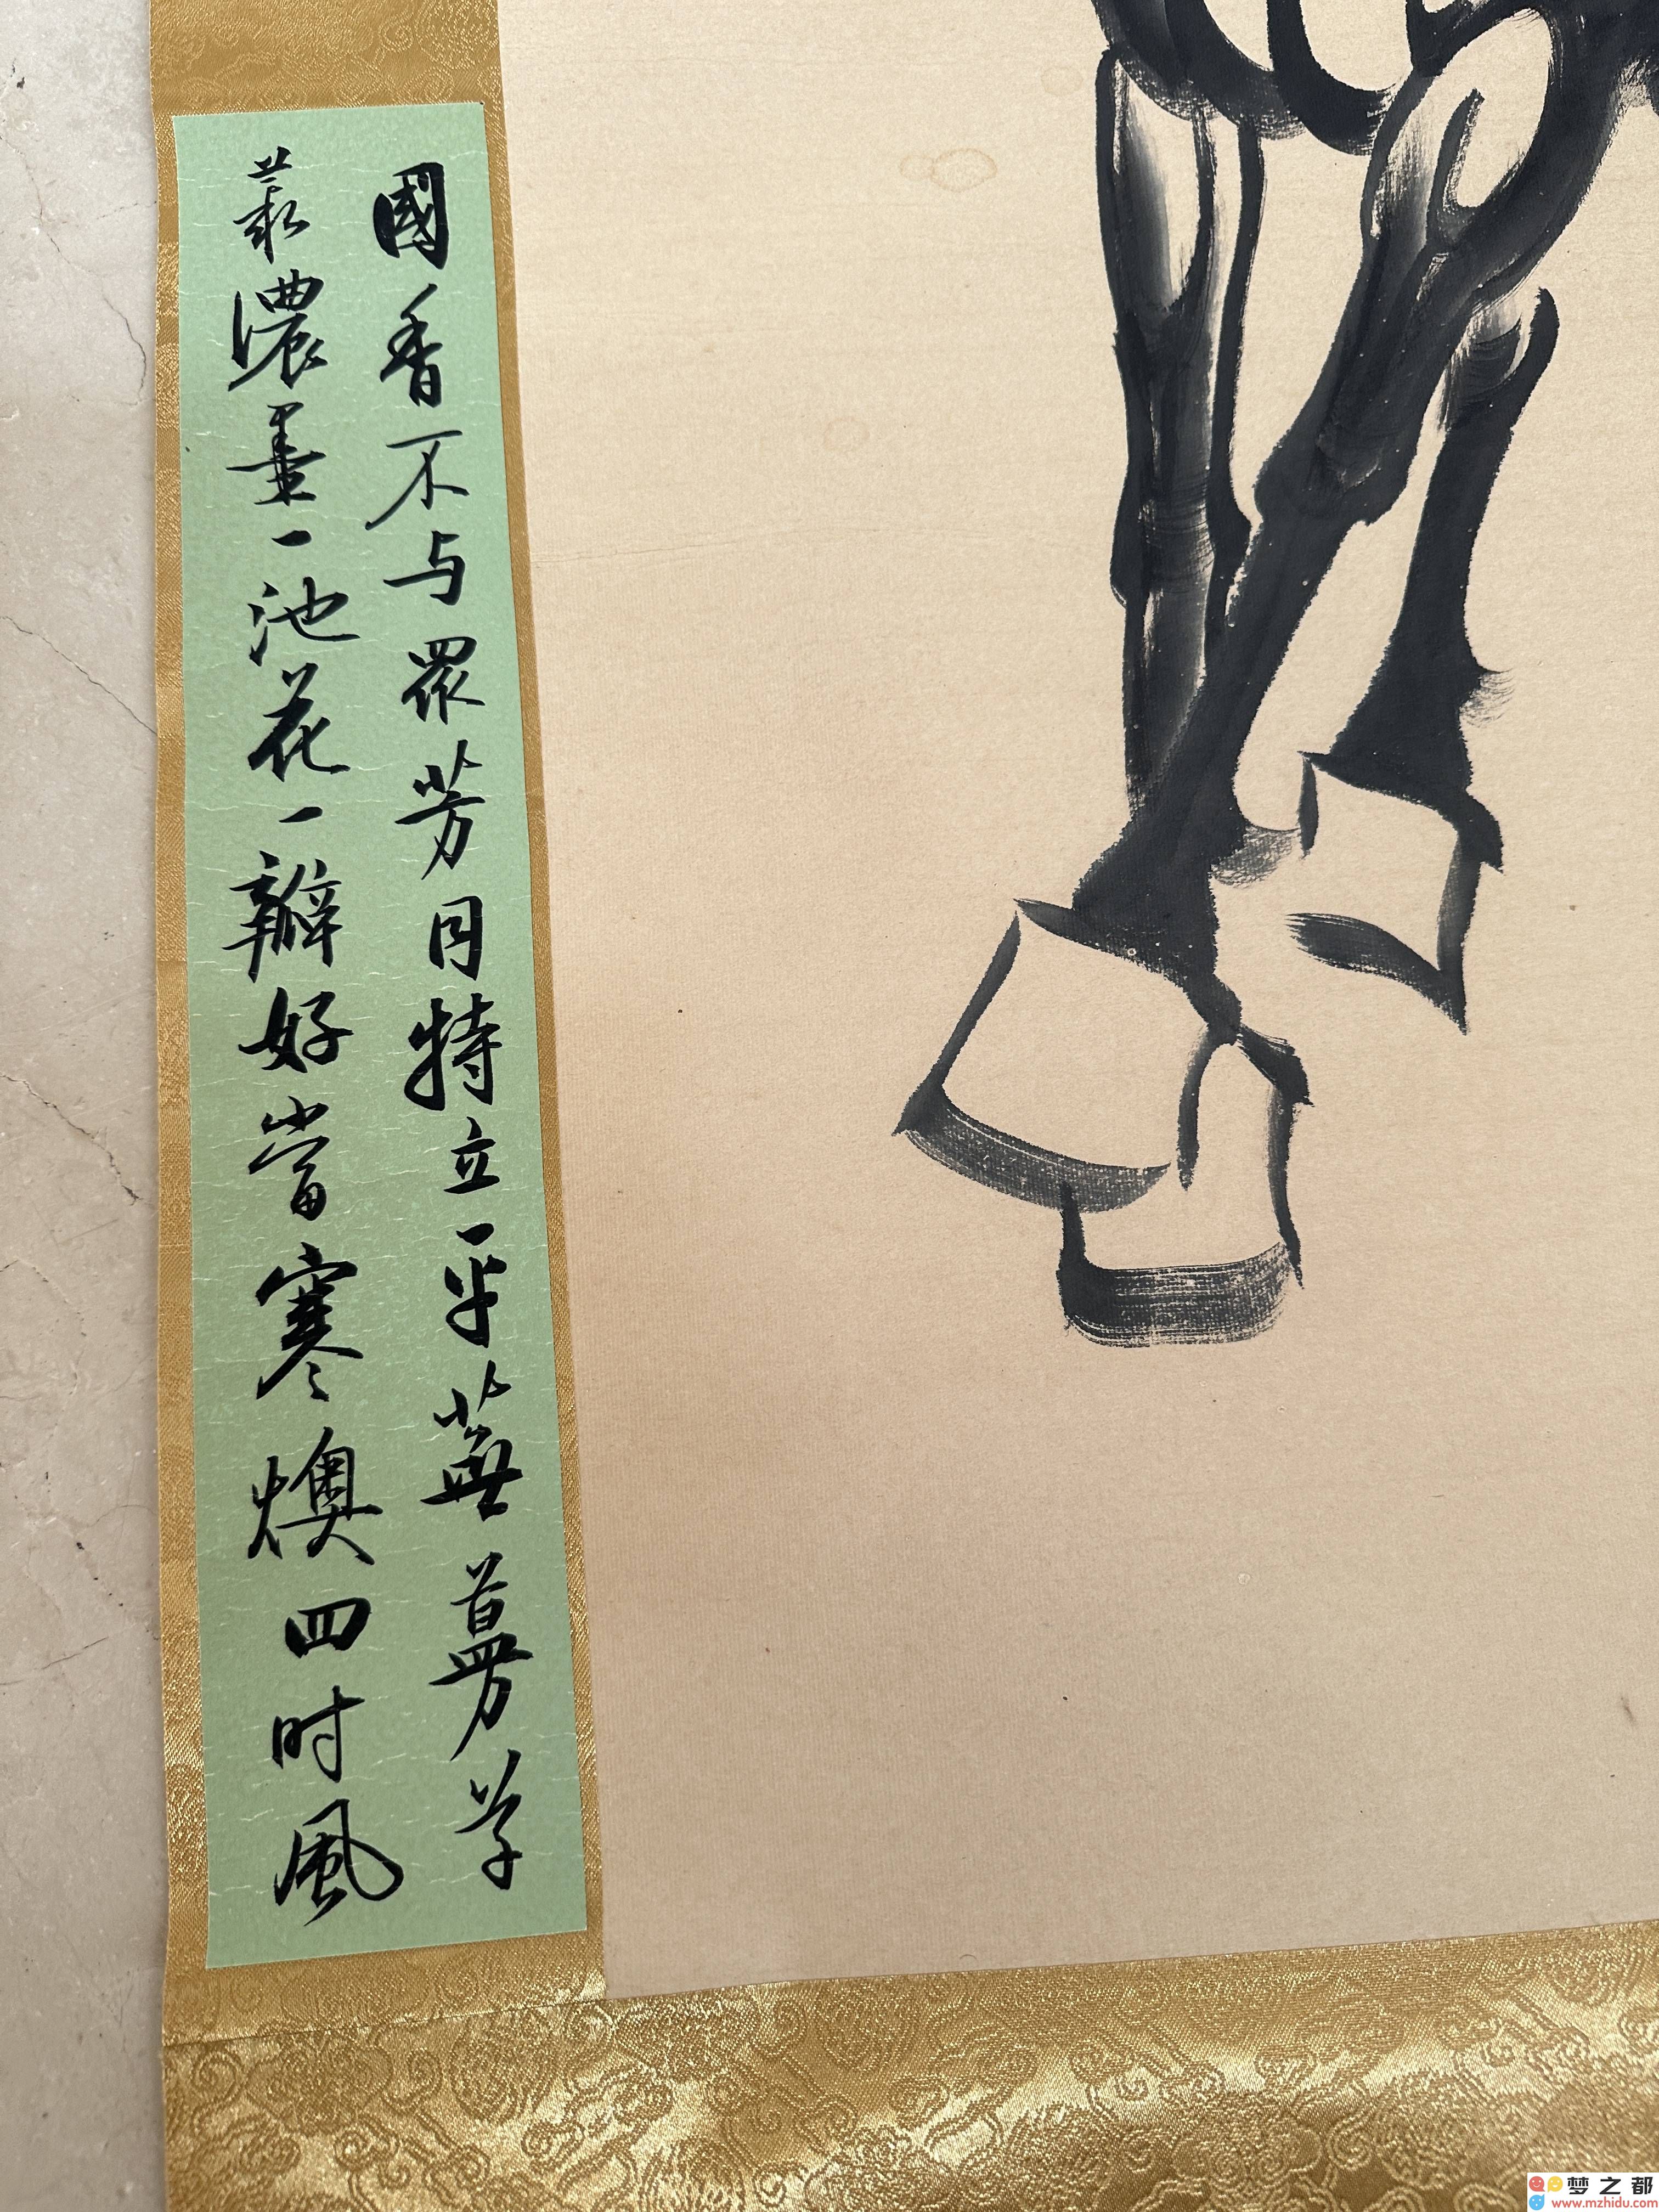 國香不与眾芳同特立平蕪蔓草
叢濃墨一池花一瓣好當寒燠四时風
梦之都
www.mzhidu.com